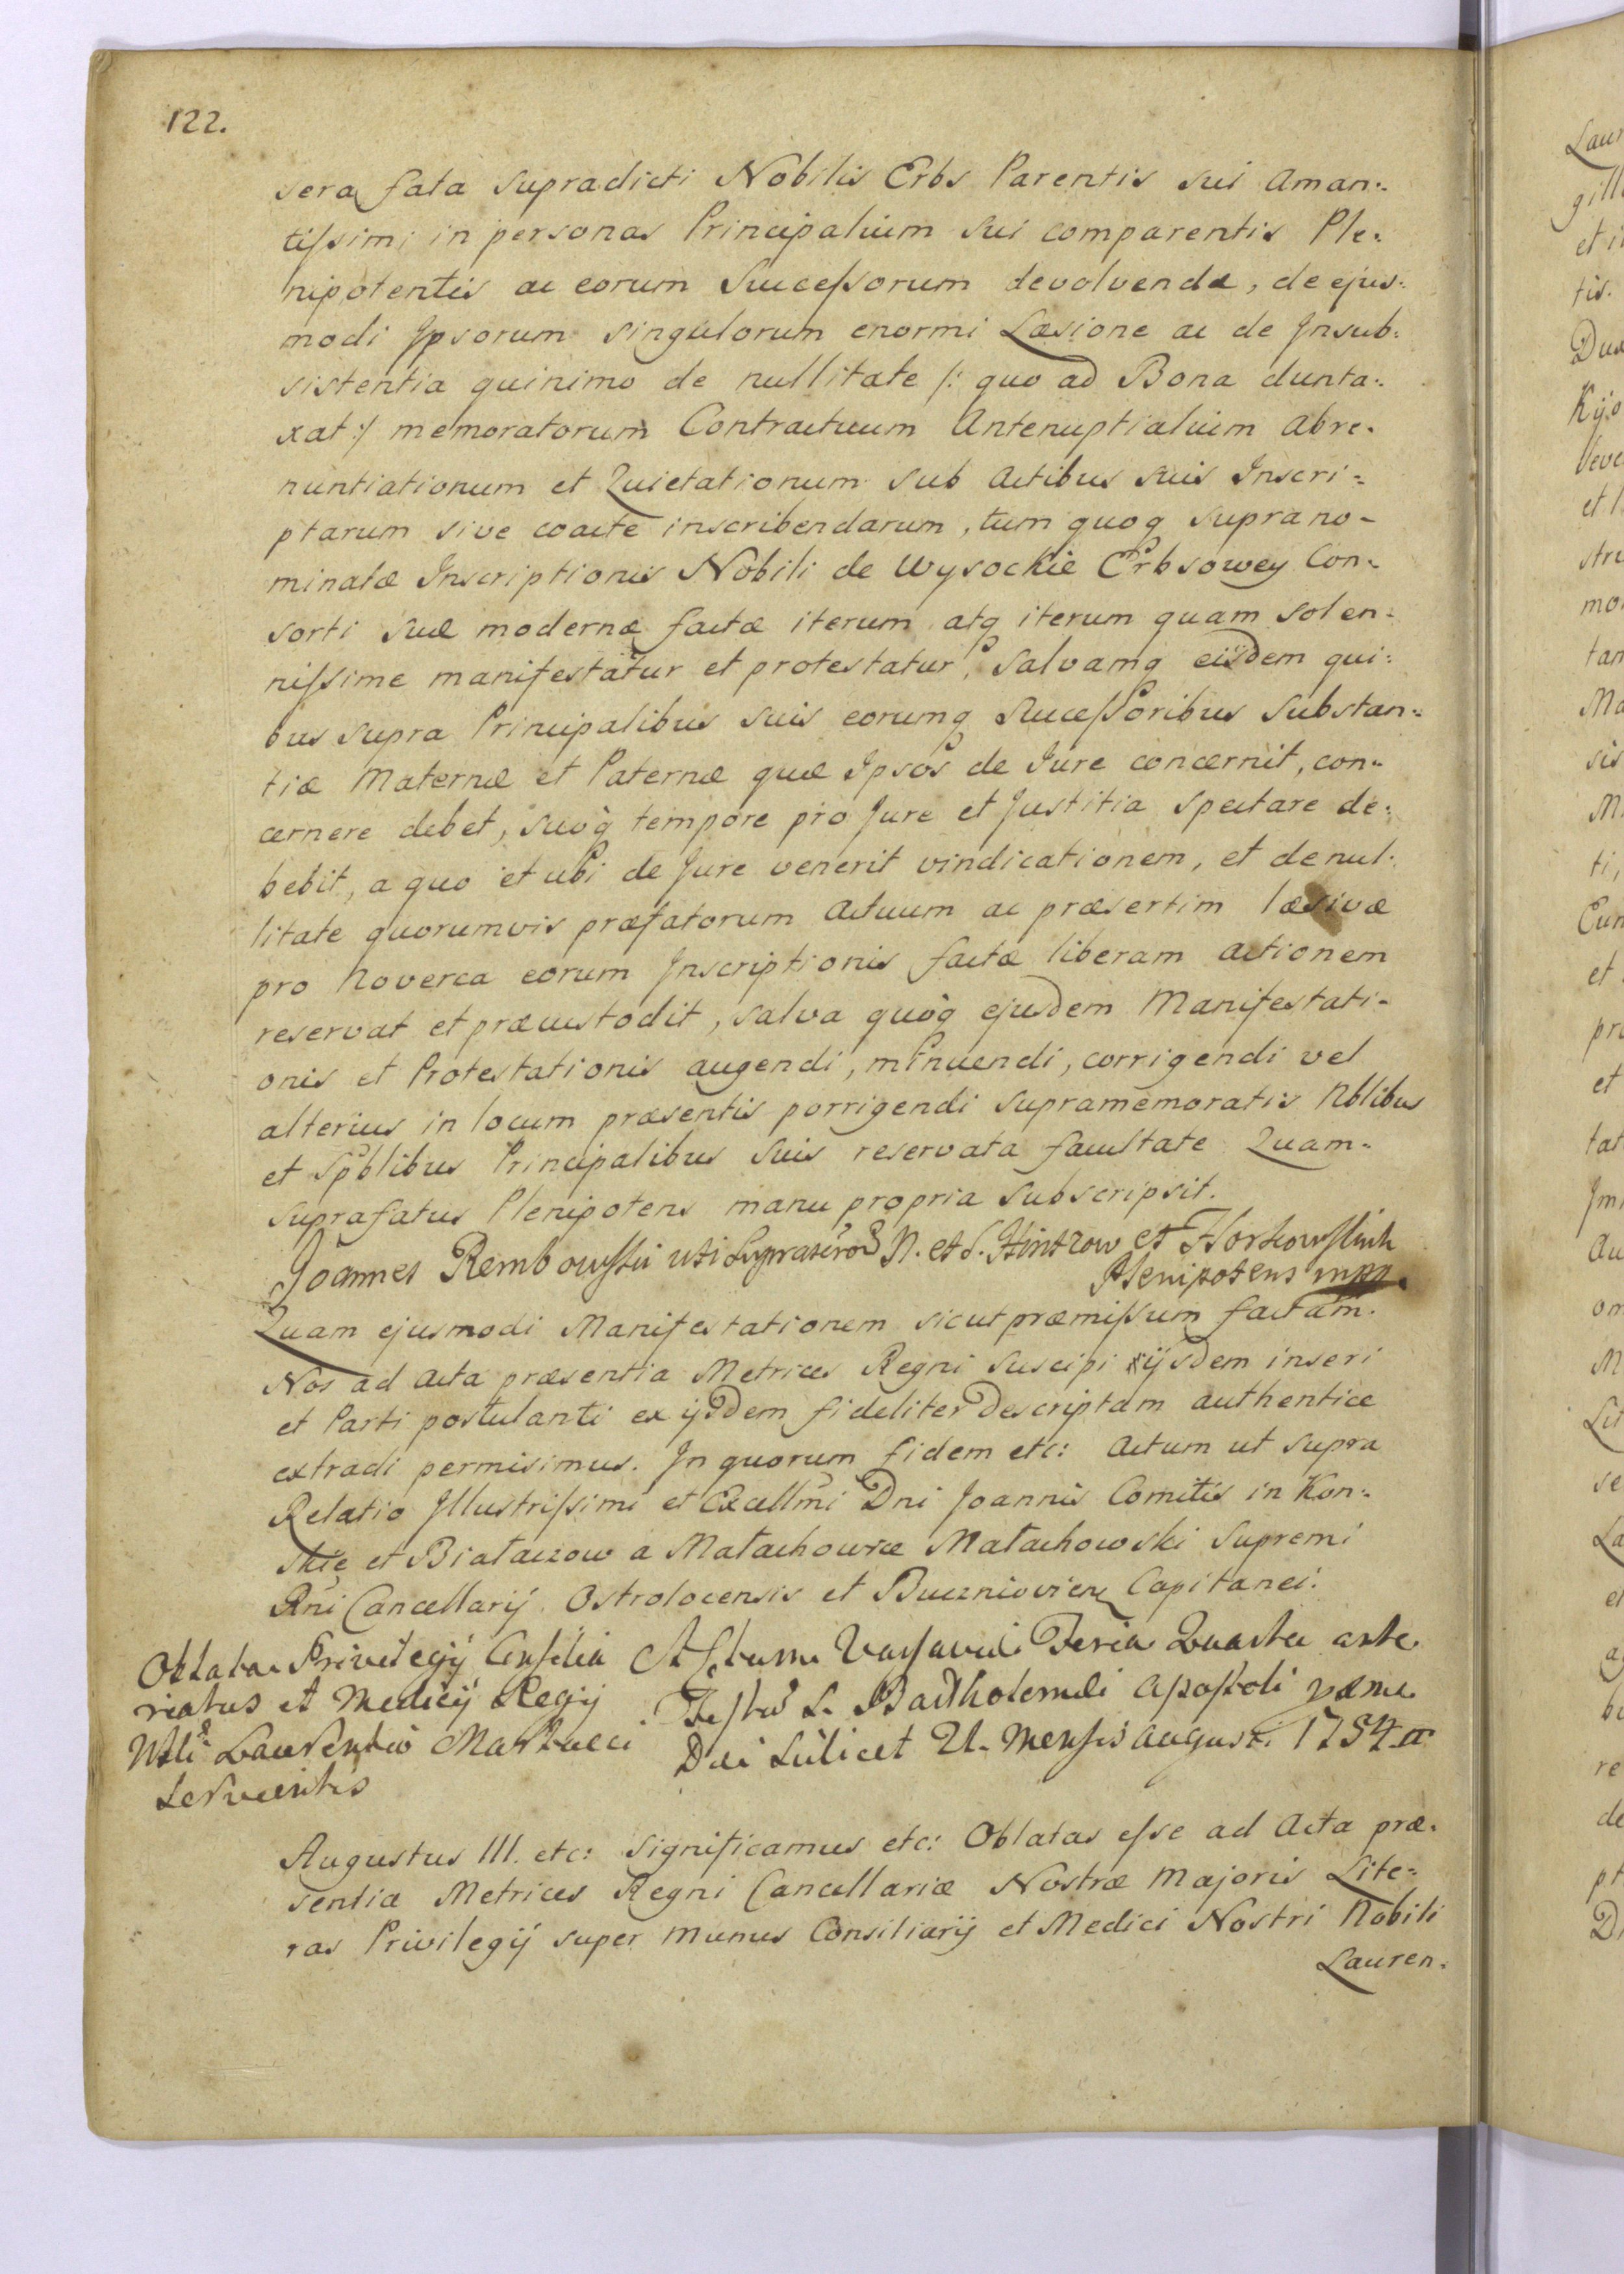 122.
sera fata supradicti Nobilis Erbs Parentis sui Aman:
tissimi in personas Principalium sui comparentis Ple:
nipotentis ac eorum Successorum devolvenda, de ejus:
modi Ipsorum singulorum enormi Læsione ac de Insub:
sistentia quinimo de nullitate /: quo ad Bona dunta:
xat :/ memoratorum Contractuum Antenuptialium Abre:
nuntiationum et Quietationum sub Actibus suis Inscri:
ptarum sive coacte inscribendarum, tum quoq suprano-
minatæ Inscriptionis Nobili de Wysockie Erbsowey Con:
sorti suæ modernæ factæ iterum atq iterum quam solen:
nissime manifestatur et protestatur, Salvamq eisdem qui:
bus supra Principalibus suis eorumq Successoribus Substan:
tiæ Maternæ et Paternæ quæ Ipsos de Iure concernit, con:
cernere debet, suoq tempore pro Jure et Justitia spectare de:
bebit, a quo et ubi de Jure venerit vindicationem, et de nul:
litate quorumvis præfatorum Actuum ac præsertim læsivæ
pro Noverca eorum Inscriptionis factæ liberam actionem
reservat et præcustodit, salva quoq ejusdem Manifestati-
onis et Protestationis augendi, minuendi, corrigendi vel
alterius in locum præsentis porrigendi supramemoratis Nblibus
et Spblibus Principalibus suis reservata facultate Quam-
suprafatus Plenipotens manu propria subscripsit.
Joannes Rembowski uti
Plenipotens mpp.
Quam ejusmodi Manifestationem sicut præmissum factam.
Nos ad Acta præsentia Metrices Regni suscipi ijsdem inseri
et Parti postulanti ex ijsdem fideliter Descriptam authentice
extradi permisimus. In quorum fidem etc: Actum ut supra
Relatio Illustrissimi et Excellmi Dni Joannis Comitis in Kon:
skie et Białaczow a Małachowice Małachowski Supremi
Rni Cancellarij. Ostrolocensis et Capitanei.
Oblata Privilegij Consilia
riatus et Medicij Regij
Laurentio
Servientis
Actum Varsaviæ Feria Quarta ante
Festum S. Bartholomæi Apostoli
Dni scilicet 21. Mensis Augusti 1754
Augustus III. etc: significamus etc: Oblatas esse ad Acta præ:
sentia Metrices Regni Cancellariæ Nostræ Majoris Lite:
ras Privilegij super munus Consiliarij et Medici Nostri Nobili
Lauren.